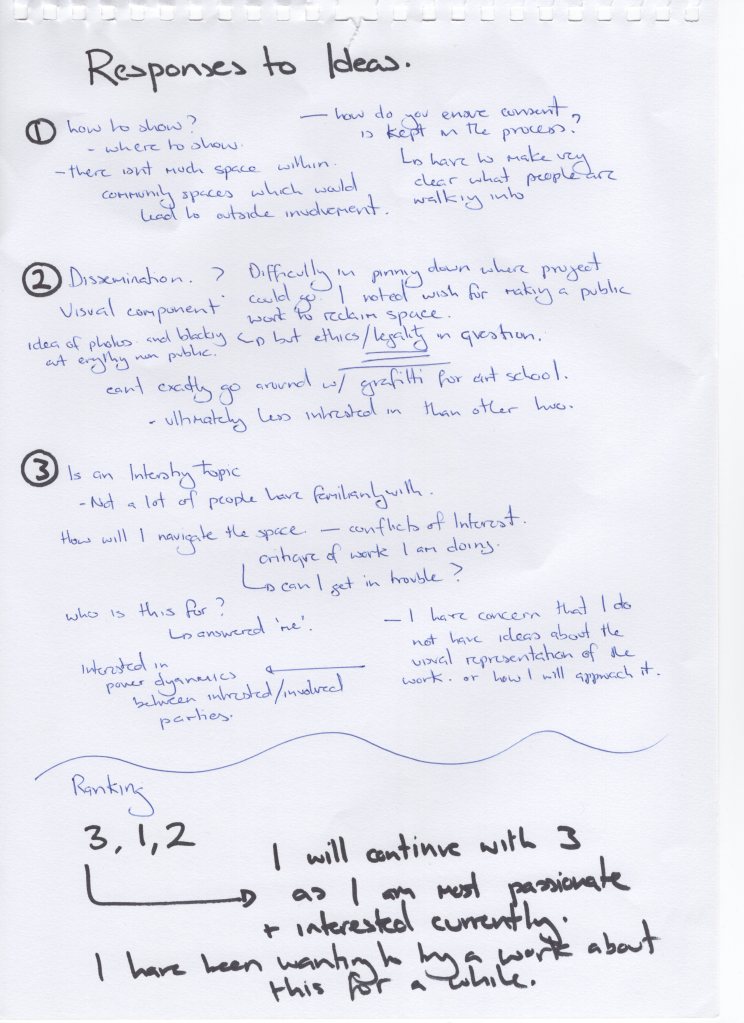 Responses to Ideas.
① how to show?
- where to show.
- there isnt much space within
community spaces which would
lead to outside involvement.
— how do you ensure consent
is kept in the process?
↳ have to make very
clear what people are
walking into
② Dissemination. ?
Visual component
idea of photos and blacking
out erything non public.
Difficulty in pinning down where project
could go. I noted wish for making a public
work to reclaim space.
↳ but ethics/legality in question.
cant exactly go around w/ grafitti for art school.
- ultimately less intrested in than other two.
③ Is an Intersting topic
- Not a lot of people have familiarity with.
How will I navigate the space. — conflicts of Interest.
critique of work I am doing.
↳ can I get in trouble?
who is this for?
↳ answered 'me'.
— I have concern that I do
not have ideas about the
visual representation of the
work. or how I will approach it.
Interested in
power dynamics
between intrested/involved
parties.
Ranking
3, 1, 2
I will continue with 3
as I am most passionate
+ interested currently.
I have been wanting to try a work about
this for a while.